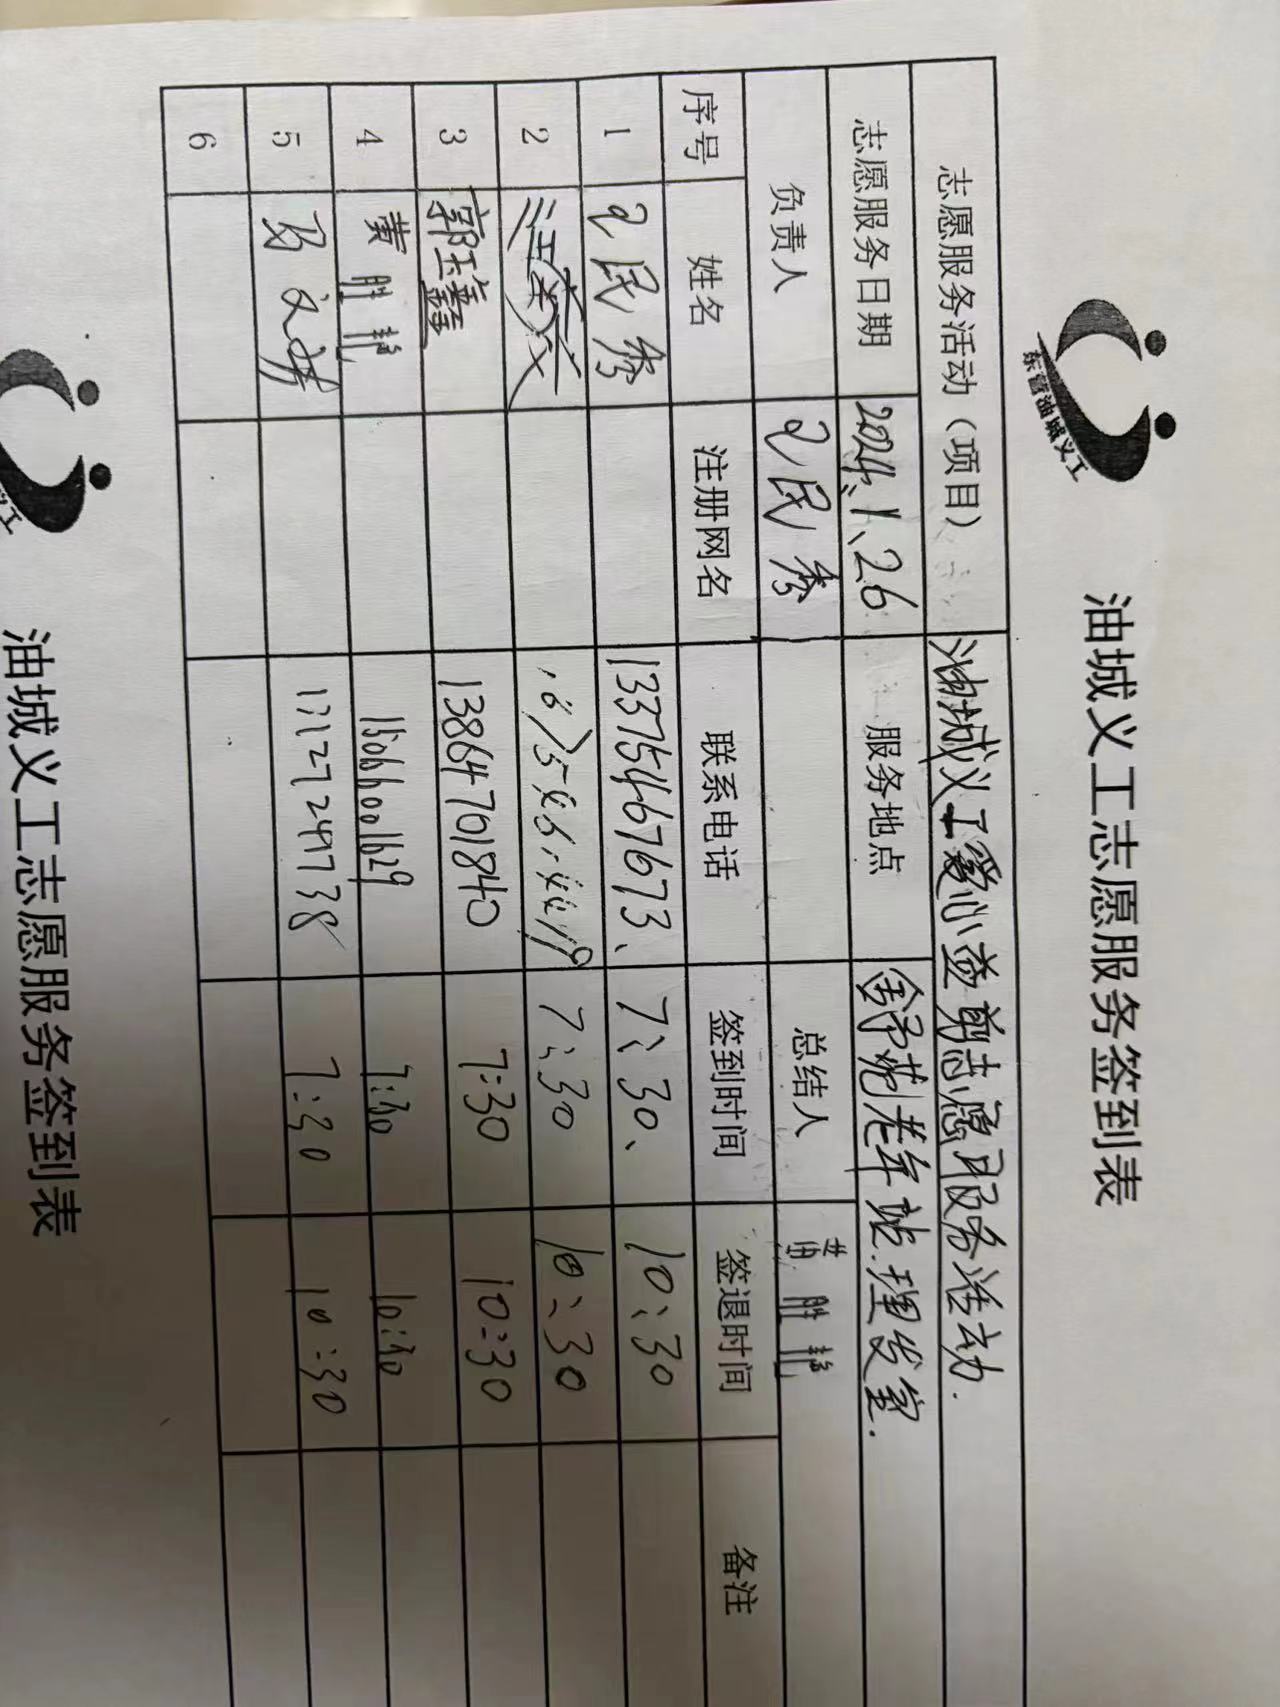 东营油城义工
油城义工志愿服务签到表
志愿服务活动（项目） 油城义工爱心益剪志愿服务活动.
志愿服务日期 2024.1.26 服务地点 舒苑老年站.理发室.
负责人 民秀 总结人 黄胜艳
序号 姓名 注册网名 联系电话 签到时间 签退时间 备注
1 民秀 13375467673、 7:30、 10:30
2 7:30 10:30
3 郭玉鑫 13864701840 7:30 10:30
4 黄胜艳 15066001629 7:30 10:30
5 17127249738 7:30 10:30
6
油城义工志愿服务签到表